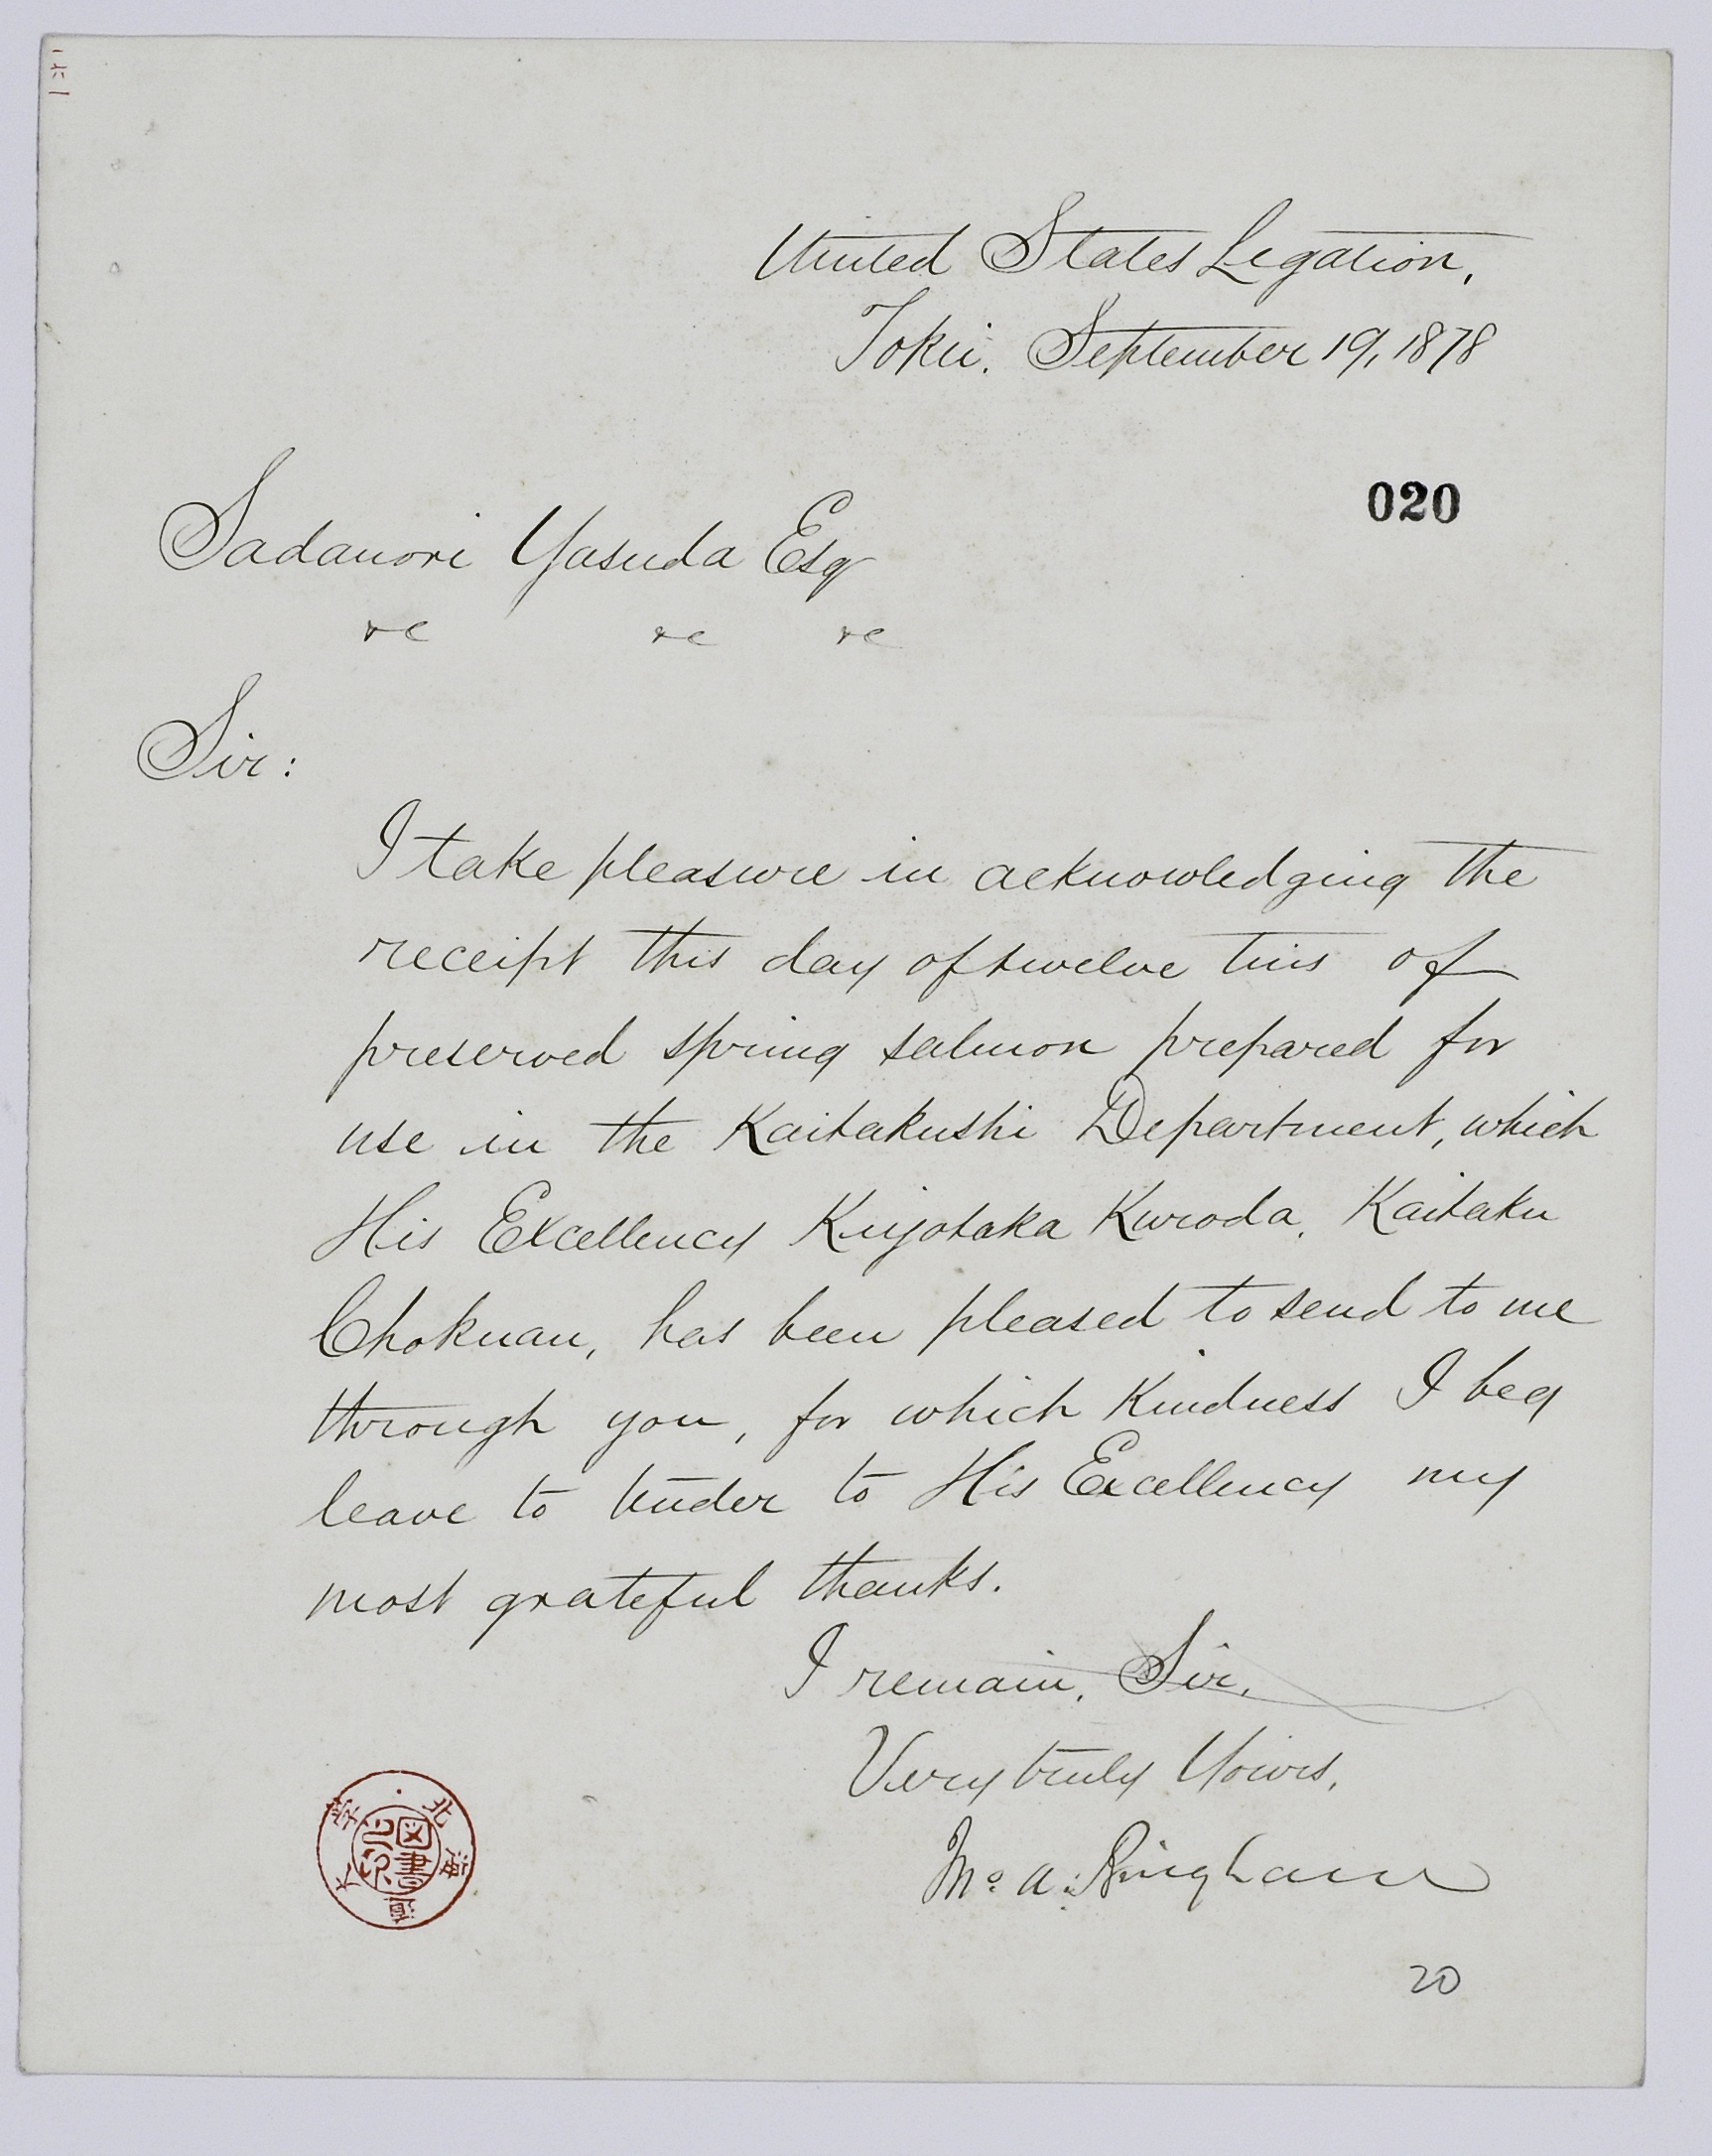 United States Legation,
Tokei. September 19, 1878
020
Sadanori Yasuda Esq
&c &c &c
Sir:
I take pleasure in acknowledging the
receipt this day of twelve tins of
preserved spring salmon prepared for
use in the Kaitakushi Department, which
His Excellency Kiyotaka Kuroda, Kaitaku
Chokuan, has been pleased to send to me
through you, for which kindness I beg
leave to tender to His Excellency my
most grateful thanks.
I remain, Sir,
Very truly Yours,
Jno. A. Bingham
北海道大学
図書之印
20